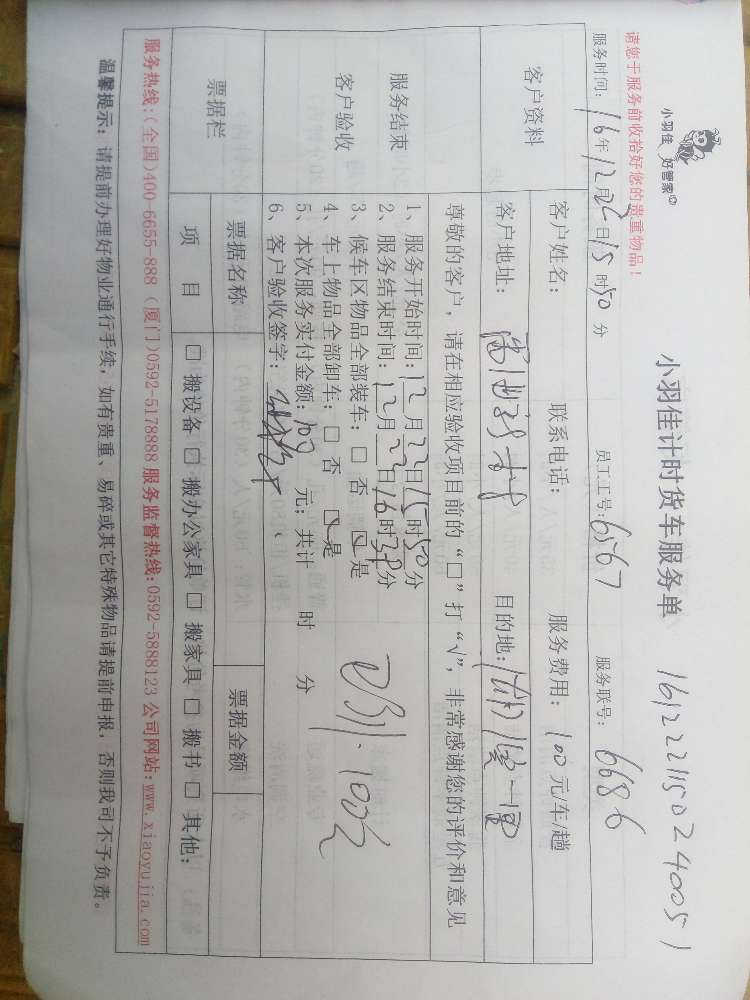 小羽佳 好管家
小羽佳计时货车服务单 161222115024005 1
请您于服务前收拾好您的贵重物品！
服务时间：16年12月 日15时50分 员工工号：6567 服务联号：6686
客户资料
客户姓名： 联系电话： 服务费用：100元/车/趟
客户地址： 目的地：
尊敬的客户，请在相应验收项目前的“□”打“√”，非常感谢您的评价和意见
服务结束
客户验收
1、服务开始时间：12月22日15时50分
2、服务结束时间：12月22日16时38分
3、候车区物品全部装车：□ 否 ☑ 是
4、车上物品全部卸车：□ 否 ☑ 是
5、本次服务实付金额：100元；共计 时 分
6、客户验收签字：
100元
票据栏
票据名称 票据金额
项 目 □ 搬设备 □ 搬办公家具 □ 搬家具 □ 搬书 □ 其他：
服务热线：(全国)400-6655-888 (厦门)0592-5178888 服务监督热线：0592-5888123 公司网站：www.xiaoyujia.com
温馨提示：请提前办理好物业通行手续，如有贵重、易碎或其它特殊物品请提前申报，否则我司不予负责。